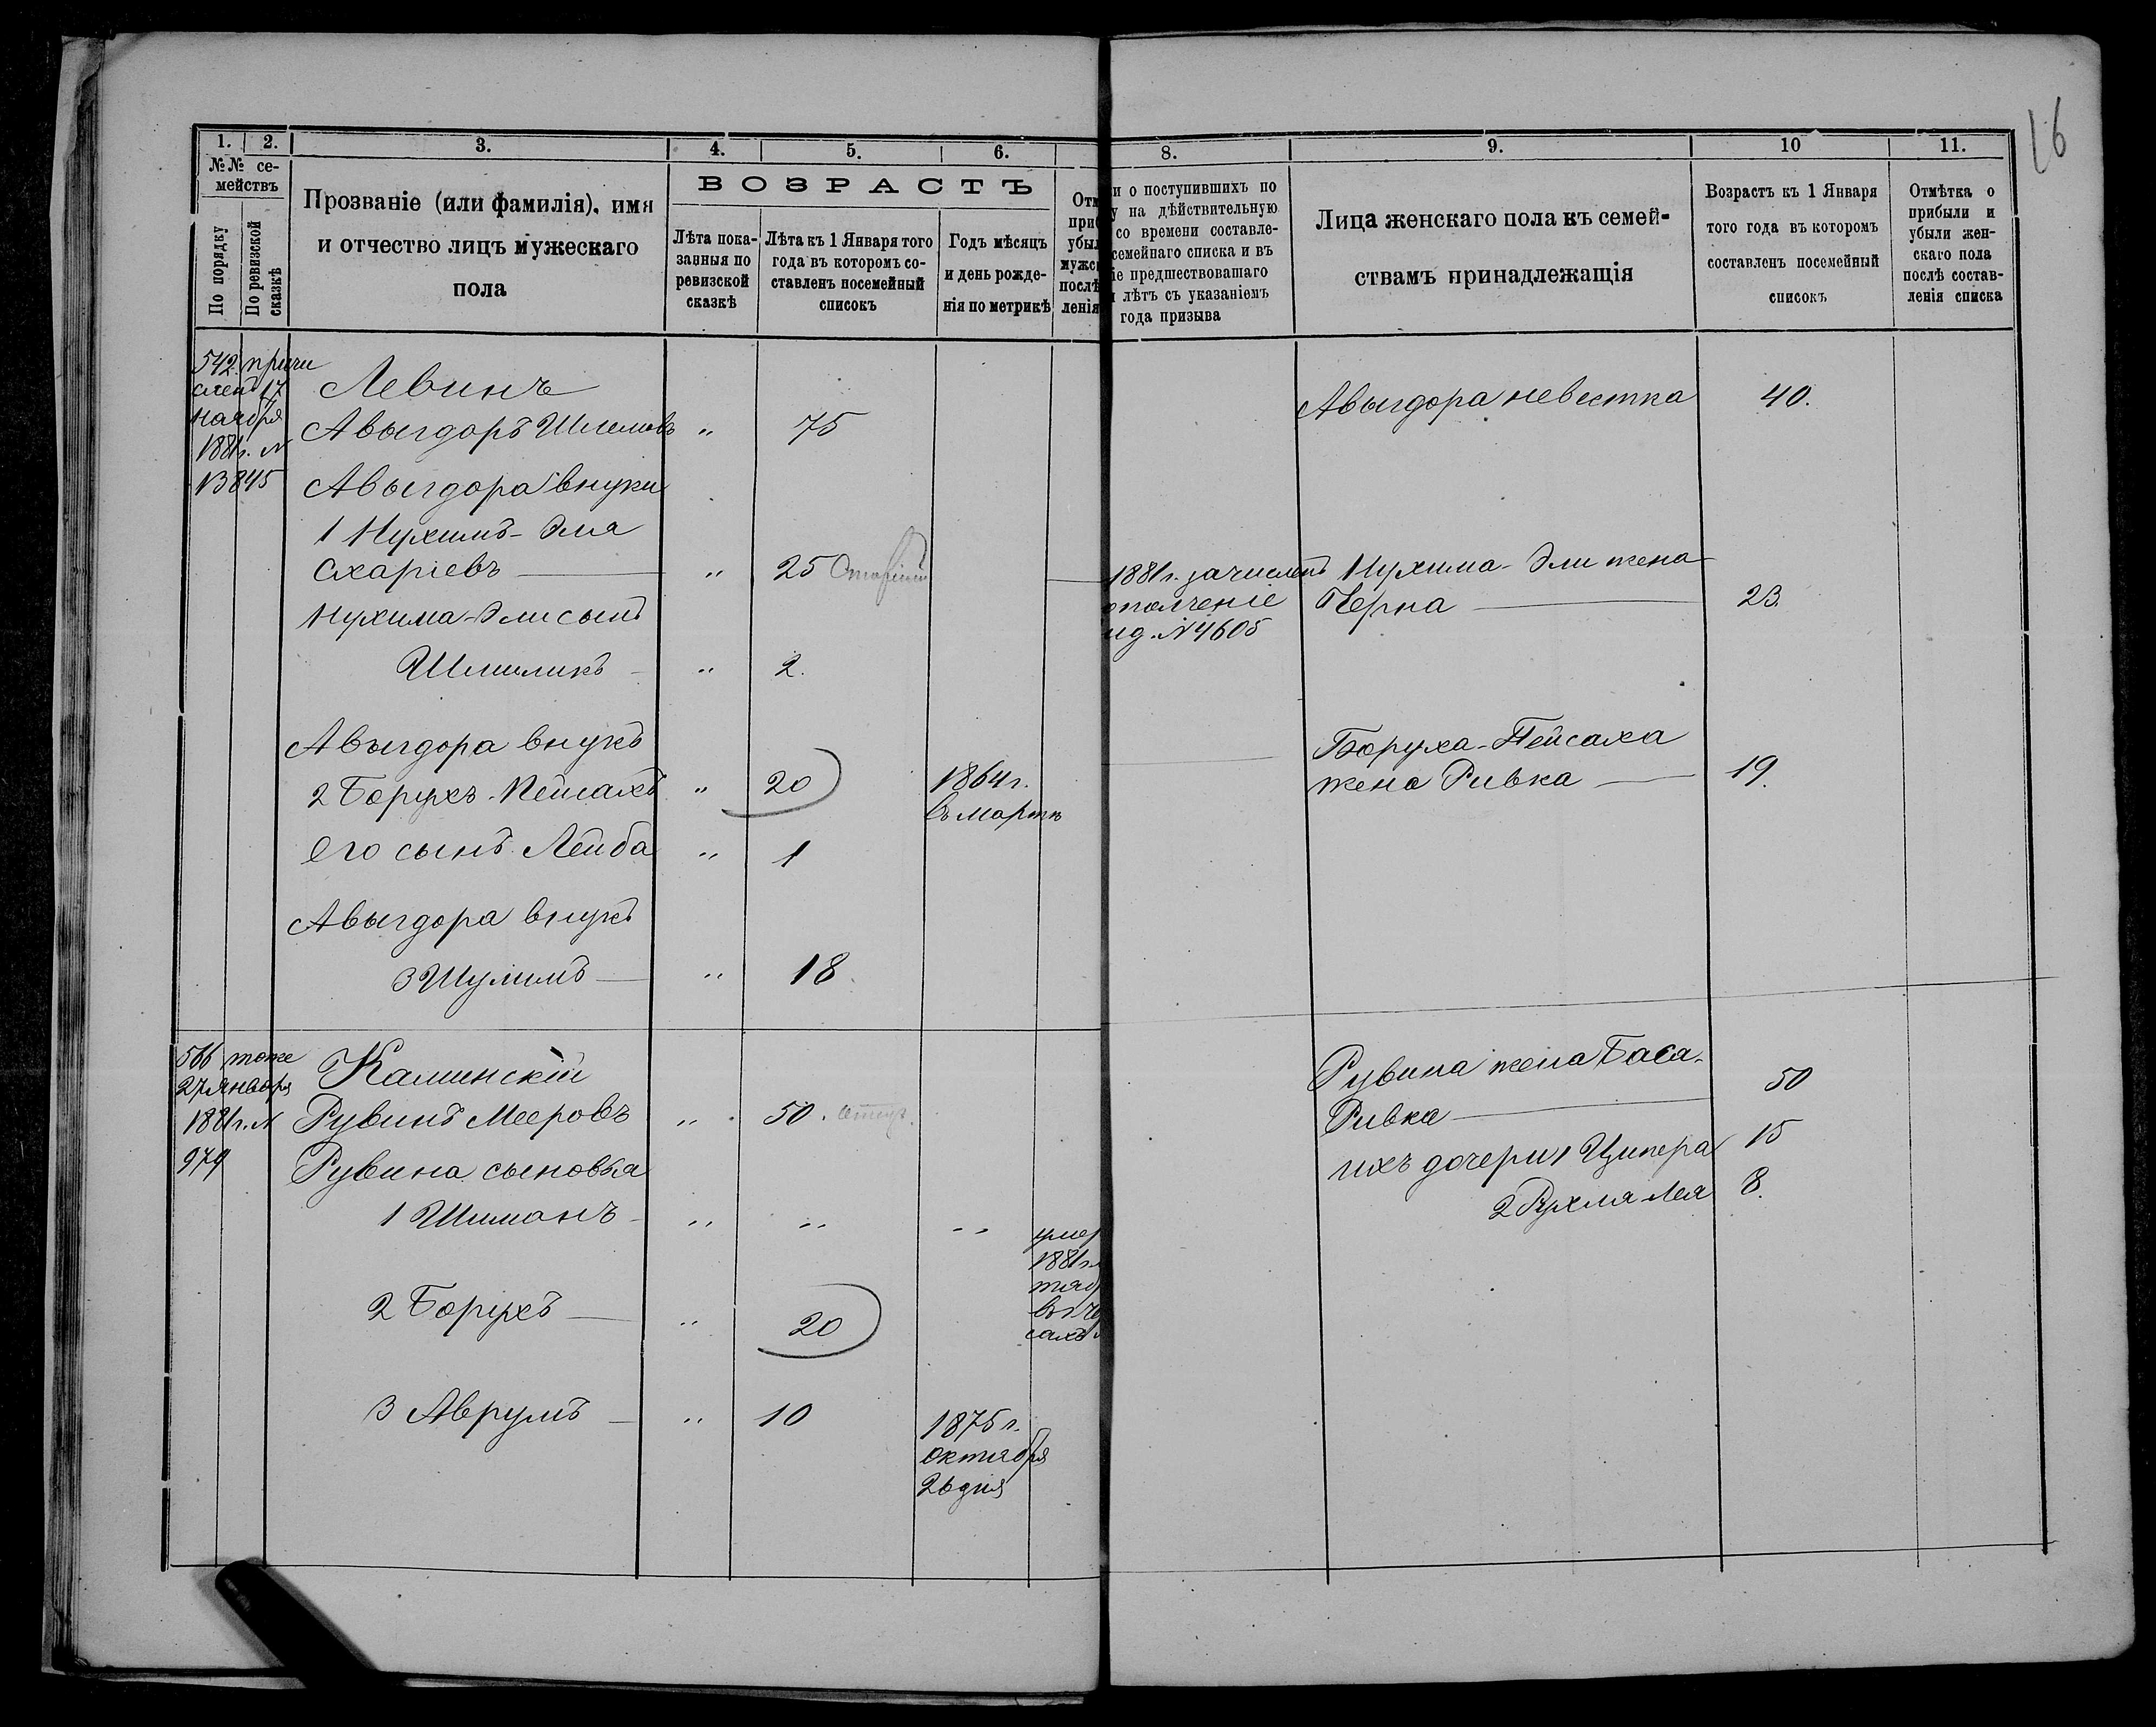 16
1. 2. 3. 4. 5. 6. 8. 9. 10 11.
№№ се-
мействъ
По порядку
По ревизской
сказкѣ
Прозваніе (или фамилія), имя
и отчество лицъ мужескаго
пола
ВОЗРАСТЪ
Лѣта пока-
занныя по
ревизской
сказкѣ
Лѣта къ 1 Января того
года въ которомъ со-
ставленъ посемейный
списокъ
Годъ мѣсяцъ
и день рожде-
нія по метрикѣ
Отм
приб
убыл
мужск
послѣ
ленія
и о поступившихъ по
у на дѣйствительную
со времени составле-
семейнаго списка и въ
іе предшествовашаго
и лѣтъ съ указаніемъ
года призыва
Лица женскаго пола къ семей-
ствамъ принадлежащія
Возрастъ къ 1 Января
того года въ которомъ
составленъ посемейный
списокъ
Отмѣтка о
прибыли и
убыли жен-
скаго пола
послѣ состав-
ленія списка
542 причи
сленъ 17
Ноября
1881г. N
13845
Левинъ
Авыгдоръ Шлемовъ " 75
Авыгдора внуки
1 Нухимъ-Эля
Схаріевъ " 25
Нухима-Эли сынъ
Шмиликъ " 2.
Авыгдора внукъ
2 Борухъ-Пейсахъ " 20 1864г.
въ мартѣ
его сынъ Лейба " 1
Авыгдора внукъ
3 Шулимъ " 18
1881г. зачисленъ
ополченіе
ид. N4605
Авыгдора невестка 40.
Нухима-Эли жена
Перна 23.
Боруха-Пейсаха
жена Ривка 19.
566 тоже
27 Января
1881г. N
979
Каминскій
Рувинъ Мееровъ " 50.
Рувина сыновья
1 Шиманъ " " "
умер
1881г.
тяб
въ
сахъ
2 Борухъ " 20
3 Аврумъ " 10 1875г.
октября
26 дня
Рувина жена Баса-
Ривка 50
ихъ дочери 1 Ципера 15
2 Рухля-Лея 8.